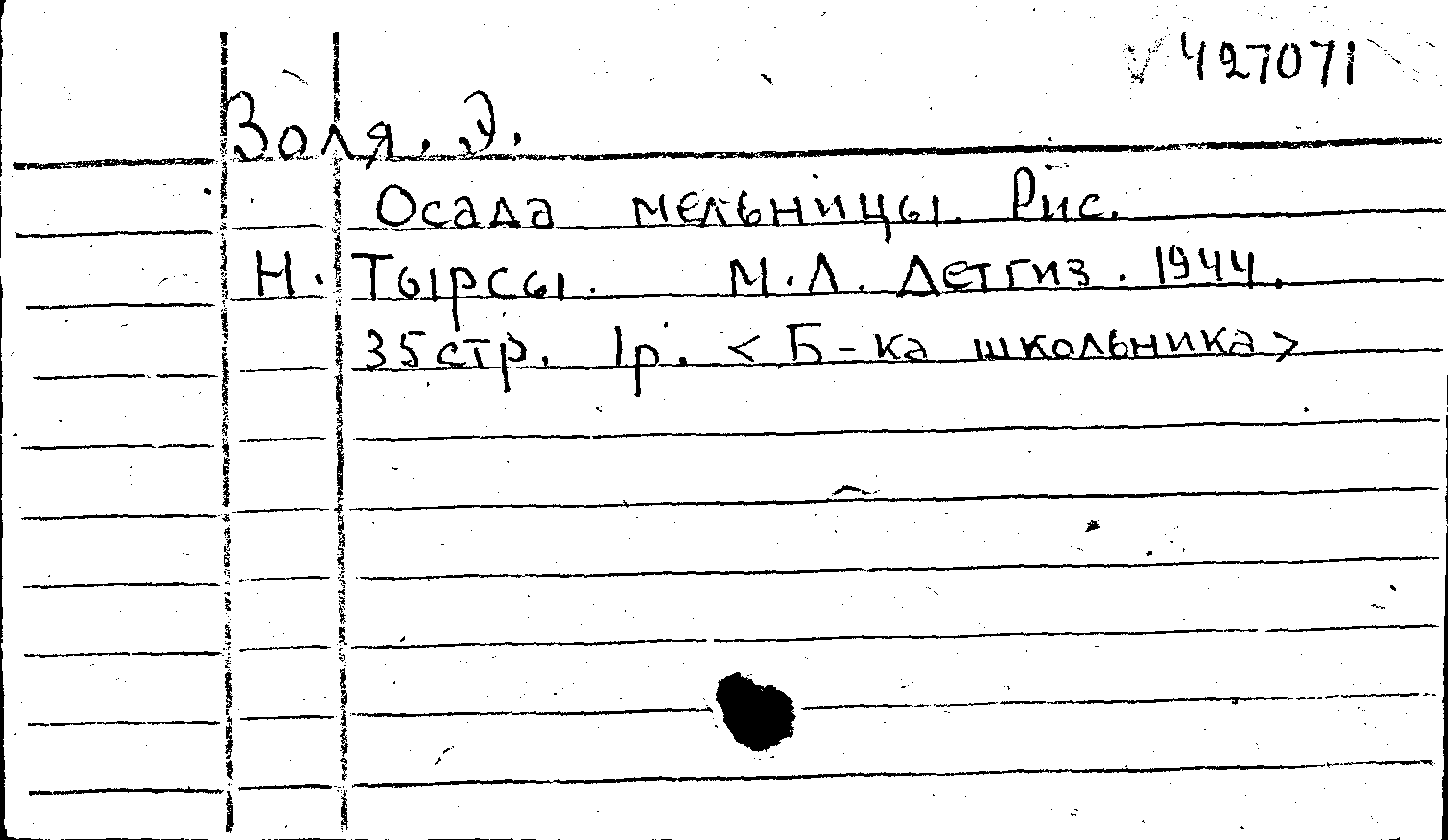 √ 427071
Золя. Э.
Осада мельницы. Рис.
Н. Тырсы. М.Л. Детгиз. 1944.
35стр. 1р. < Б-ка школьника >